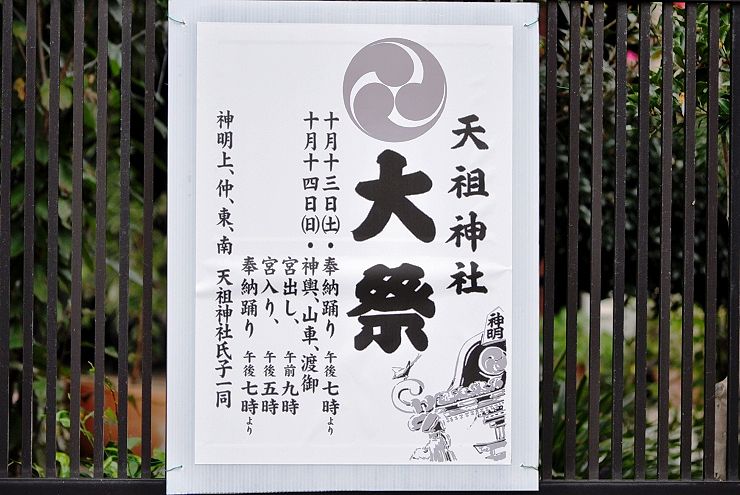 天祖神社
大祭
十月十三日㈯・奉納踊り 午後七時より
十月十四日㈰・神輿、山車、渡御
宮出し、午前九時
宮入り、午後五時
奉納踊り 午後七時より
神明上、仲、東、南 天祖神社氏子一同
神明